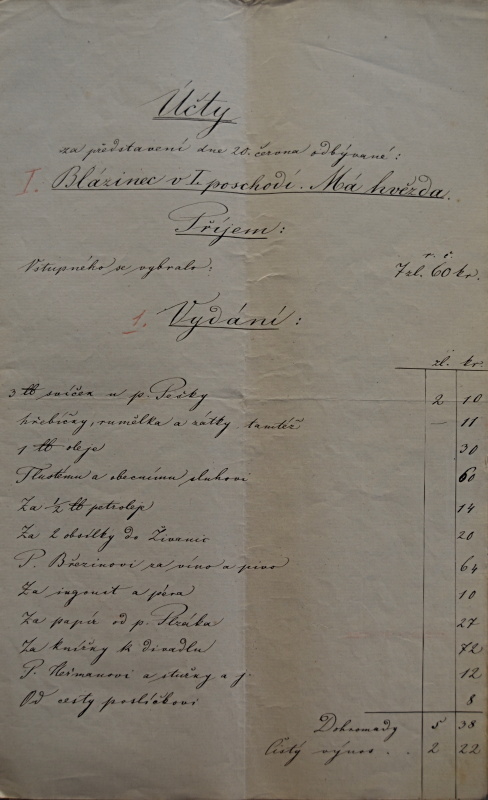 Účty
za představení dne 20. června odbývané:
I. Blázinec v I. poschodí. Má hvězda.
Příjem:
r. č.
Vstupného se vybralo: 7 zl. 60 kr.
1. Vydání:
zl. kr.
3 lb svíček u p. Pešky 2 10
hřebíčky, rumělka a zátky tamtéž — 11
1 lb oleje 30
a obecnímu sluhovi 60
Za 1/2 lb petroleje 14
Za 2 obsílky do Živanic 20
P. Březinovi za víno a pivo 64
Za ingoust a péra 10
Za papír od p. Plzáka 27
Za knížky k divadlu 72
P. Heřmanovi a stužky a j. 12
Od cesty poslíčkovi 8
Dohromady 5 38
Čistý výnos . . 2 22